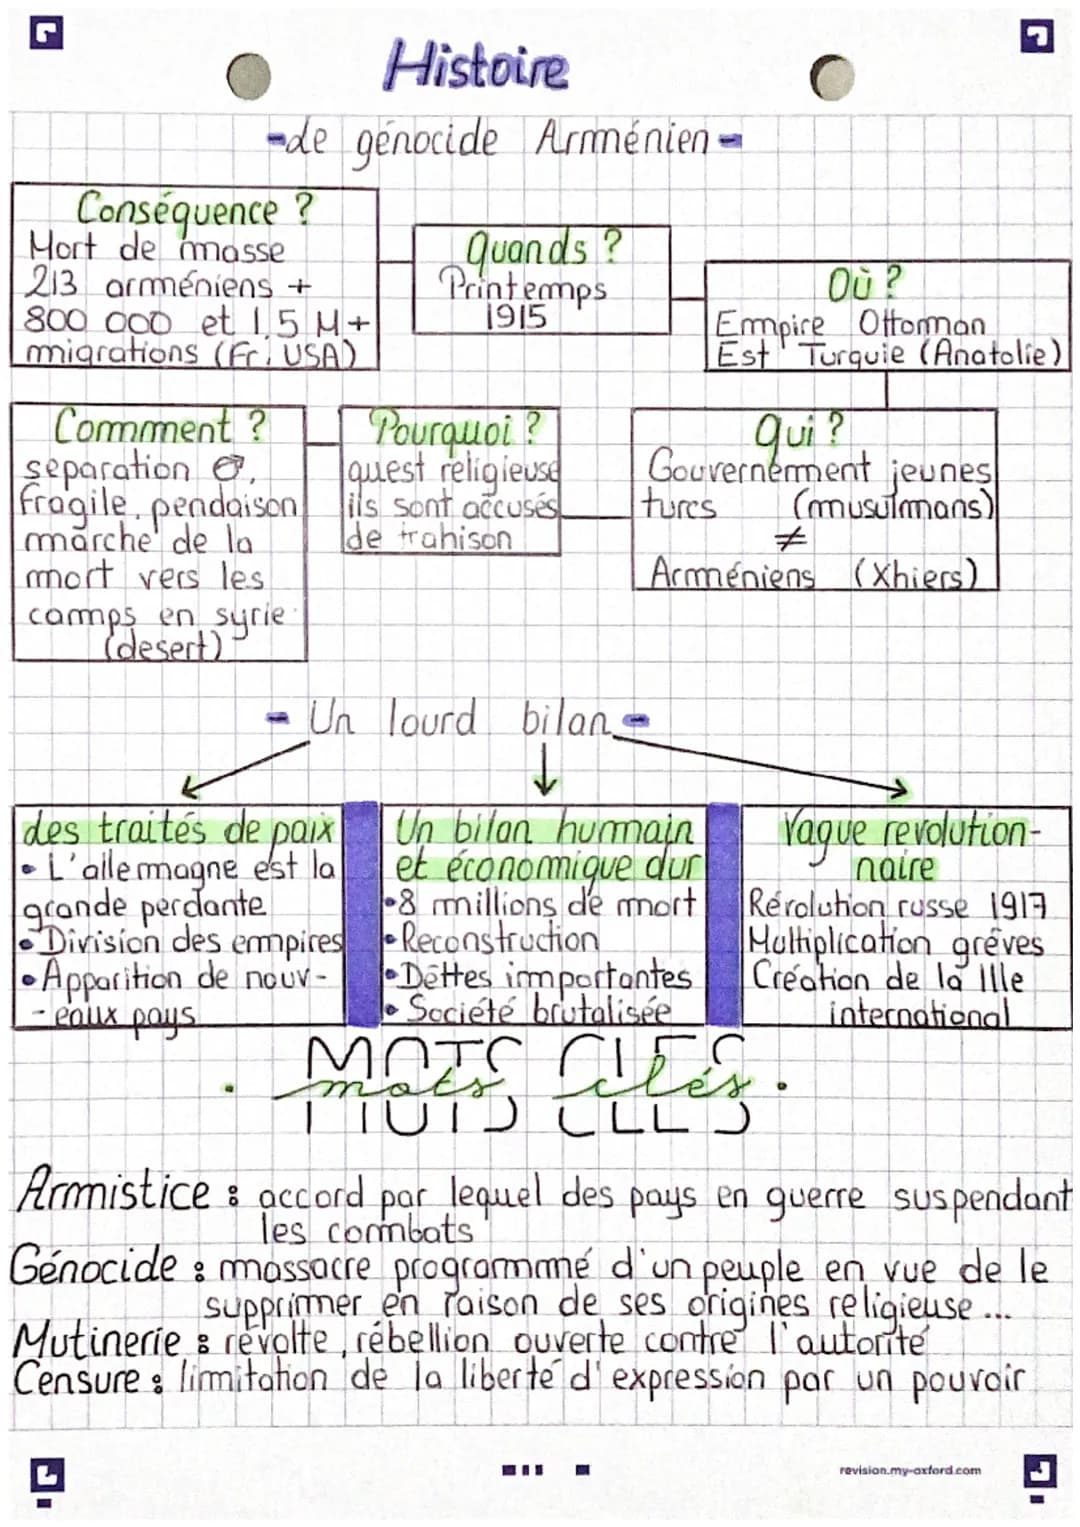 Histoire
-de génocide Arménien-
Conséquence ?
Mort de masse
213 arméniens +
800 000 et 1,5 M+
migrations (Fr, USA)
Quands ?
Printemps
1915
Où ?
Empire Ottoman
Est Turquie (Anatolie)
Comment ?
séparation ♂,
fragile, pendaison
marche de la
mort vers les
camps en syrie
(desert)
Pourquoi ?
quest religieuse
ils sont accusés
de trahison
Qui ?
Gouvernement jeunes
turcs (musulmans)
≠
Arméniens (Xhiers)
- Un lourd bilan -
des traités de paix
• L'allemagne est la
grande perdante
• Division des empires
• Apparition de nouv-
- eaux pays
Un bilan humain
et économique dur
• 8 millions de mort
• Reconstruction
• Dettes importantes
• Société brutalisée
Vague revolution-
naire
Révolution russe 1917
Multiplication grèves
Création de la IIIe
international
MOTS CLES
. mots clés .
Armistice : accord par lequel des pays en guerre suspendant
les combats
Génocide : massacre programmé d'un peuple en vue de le
supprimer en raison de ses origines religieuse ...
Mutinerie : révolte, rébellion ouverte contre l'autorité
Censure : limitation de la liberté d'expression par un pouvoir
revision.my-oxford.com